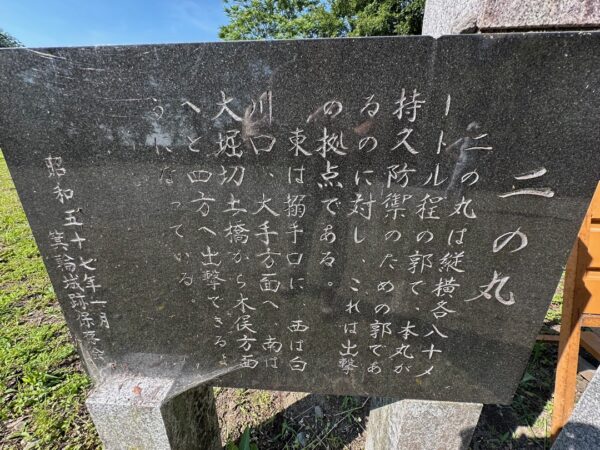 二の丸
二の丸は縦横各八十メ
ートル程の郭で、本丸が
持久防禦のための郭であ
るのに対し、これは出撃
の拠点である。
東は搦手口に、西は白
川口、大手方面へ、南は
大堀切土橋から木俣方面
へと四方へ出撃できると
ろになっている。
昭和五十七年一月
箕輪城跡保存会